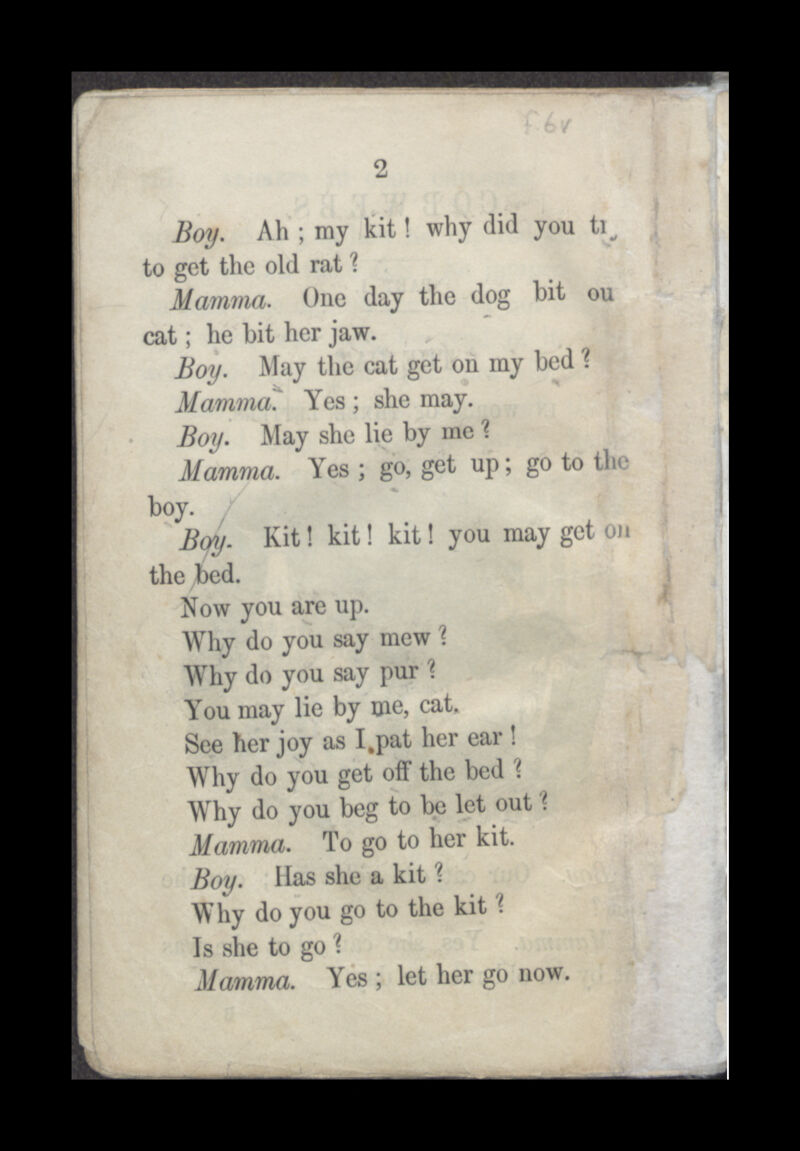 f.6v
2
Boy. Ah ; my kit ! why did you
to get the old rat ?
Mamma. One day the dog bit ou
cat ; he bit her jaw.
Boy. May the cat get on my bed ?
Mamma. Yes ; she may.
Boy. May she lie by me ?
Mamma. Yes ; go, get up ; go to the
boy.
Boy. Kit ! kit ! kit ! you may get on
the bed.
Now you are up.
Why do you say mew ?
Why do you say pur ?
You may lie by me, cat.
See her joy as I pat her ear !
Why do you get off the bed ?
Why do you beg to be let out ?
Mamma. To go to her kit.
Boy. Has she a kit ?
Why do you go to the kit ?
Is she to go ?
Mamma. Yes ; let her go now.